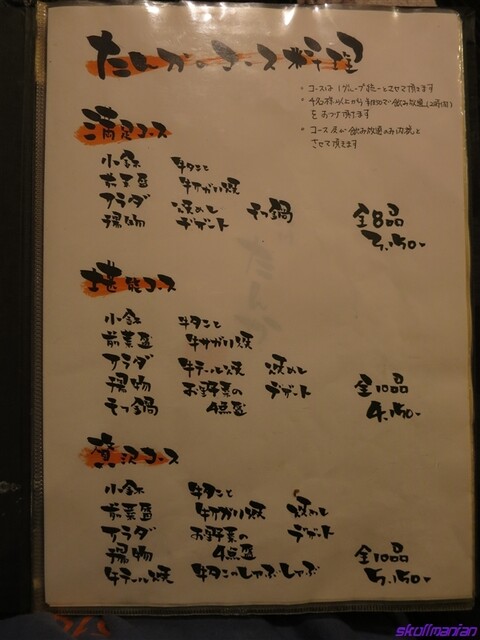 たんかのコース料理
・コースは1グループ統一とさせて頂きます
・4名様以上から
飲み放題(2時間)
をお付け頂けます
・コース及び飲み放題のみ
とさせて頂きます
満足コース
小鉢 牛タンと
前菜盛 牛サガリ焼
サラダ 焼めし モツ鍋
揚物 デザート
全8品
3,150-
堪能コース
小鉢 牛タンと
前菜盛 牛サガリ焼
サラダ 牛テール焼 焼めし
揚物 お野菜の デザート
モツ鍋 4点盛
全10品
4,150-
贅沢コース
小鉢 牛タンと
前菜盛 牛サガリ焼 焼めし
サラダ お野菜の デザート
揚物 4点盛
牛テール焼 牛タンのしゃぶしゃぶ
全10品
5,150-
skullmanian